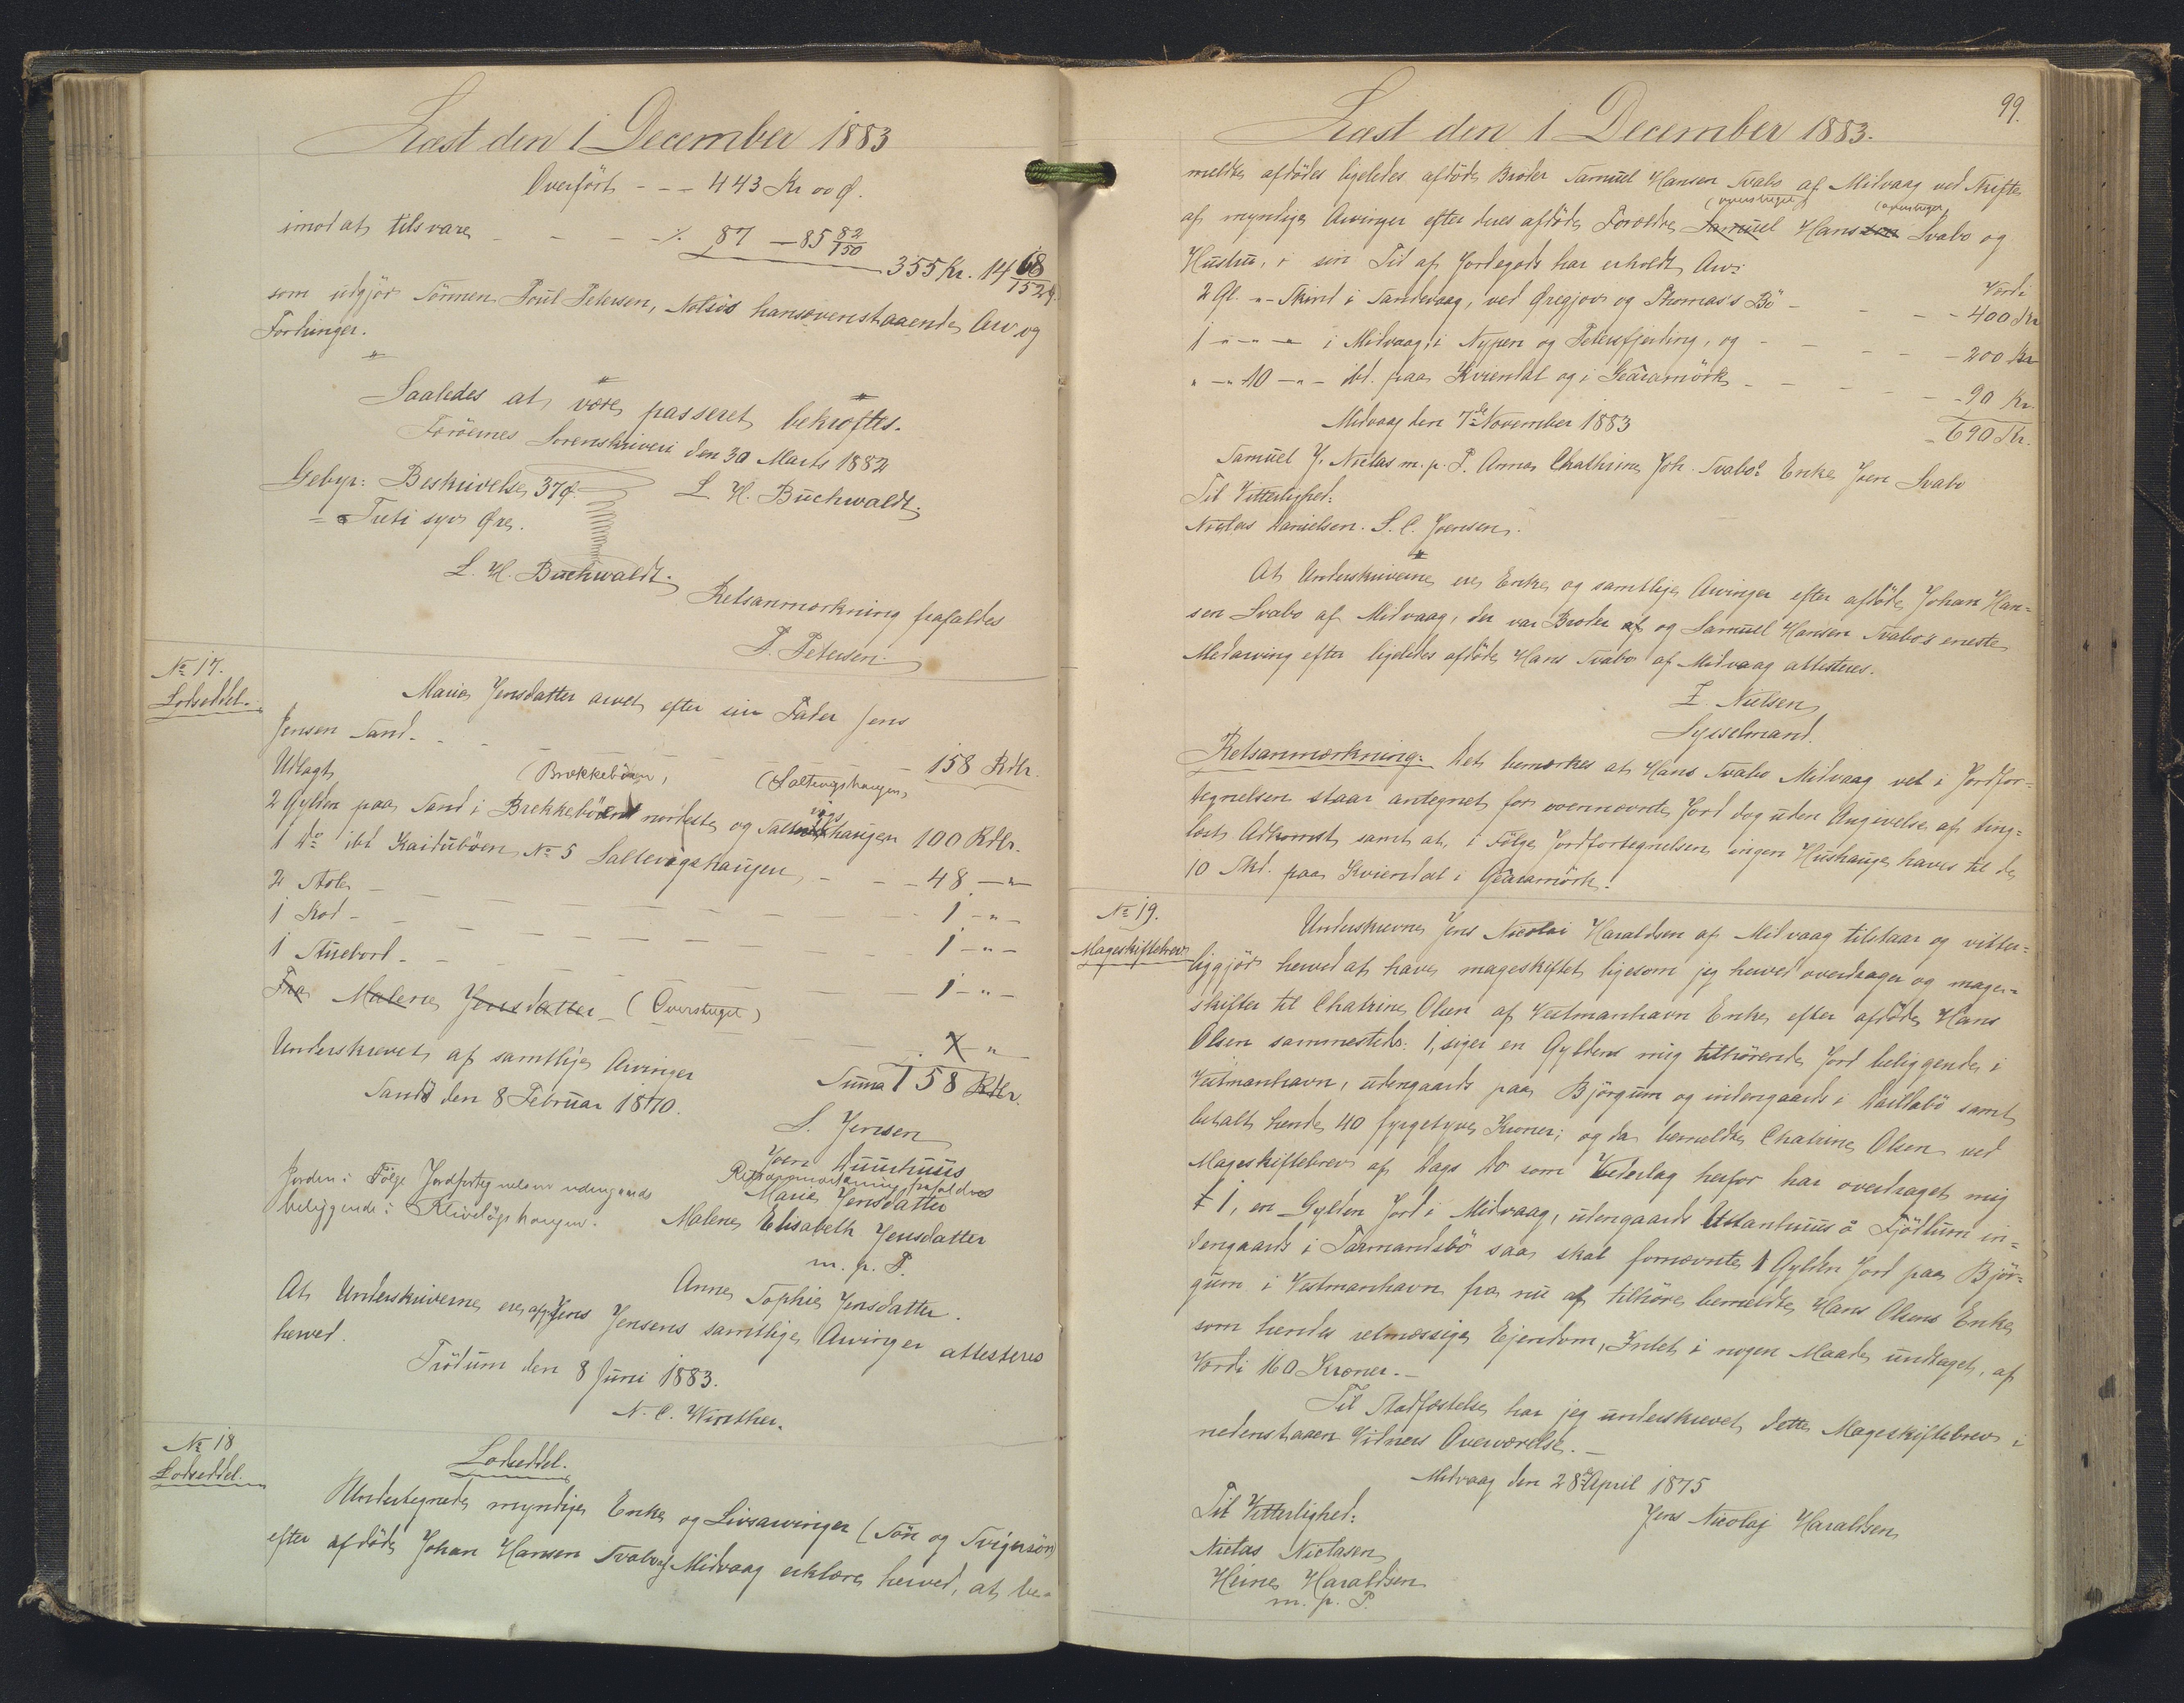 Læst den 1 December 1883
Overført - - - 443 Kr 00 Ø.
imod at tilsvare - - - - ·/. 87 - 85 82/150
355 Kr. 14 68/152 Ø.
som udgjør Sønnen Poul Petersen, Nolsøs hans ovenstaaende Arv og
Fordringer.
Saaledes at være passeret bekræftes.
Færøernes Sorenskriveri den 30 Marts 1882
Gebyr: Beskrivelse 37 Ø. L. H. Buchwaldt.
= Treti syv Øre.
L. H. Buchwaldt.
Retsanmærkning frafaldes
P. Petersen
No 17.
Lodseddel.
Maria Jensdatter arvet efter sin Fader Jens
Jensen Sand. - - - - - 158 Rdlr.
Udlagt (Brekkebøen, (Saltvigshaugen,
2 Gylden paa Sand i Brekkebøen nordeste og Saltvigshaugen 100 Rdlr.
1 do ibd Kaidubøen No 5 Saltevigshaugen, - - - 48 - " -
2 Stole - - - - 1 - " -
1 Rok - - - - 1 - " -
1 Stuebord - - - - 1 - " -
Fra Malene Jensdatter - (Overstreget) - - - X "
Underskrevet af samtlige Arvinger Suma 158 Rdlr.
Sand den 8 Februar 1870.
S. Jensen
Joen Duurhuus
Jorden i Følge Jordfortegnelsen udengaards Retsanmærkning frafaldes
Maria Jensdatter
beliggende i Kliveløgshaugen. Malene Elisabeth Jensdatter
m. p. P.
Anne Sophie Jensdatter.
At Underskriverne ere afg. Jens Jensens samtlige Arvinger attesteres
herved.
Trödum den 8 Juni 1883.
N. C. Winther.
No 18
Lodseddel.
Lodseddel.
Undertegnede myndige Enke og Livsarvinger (Søn og Svigersøn)
efter afdøde Johan Hansen Svabo af Midvaag erklære herved, at be-
99.
Læst den 1 December 1883.
meldte afdødes ligeledes afdøde Broder Samuel Hansen Svabo af Midvaag ved Skifte
(overstreget) (overstreget)
af myndige Arvinger efter deres afdøde Forældre Samuel Hansson Svabo og
Hustru, i sin Tid af Jordegods har erholdt Arv:
Værdi
2 Gl. " - Skind i Sandevaag, ved Øregjov og Thomas's Bö - - - 400 Kr
1 - " - " - i Midvaag, i Nypen og Petersfjerding, og - - - 200 Kr
" - " 10 - " - ibd. paa Kviendal og i Gearamörk - - - 90 Kr.
690 Kr.
Midvaag den 7de November 1883
Samuel J. Niclas m. p. P. Anna Chathrine Joh. Svabos Enke Joen Svabo
Til Vitterlighed:
Niclas Danielsen. S. C. Joensen.
At Underskriverne ere Enke og samtlige Arvinger efter afdøde Johan Han=
sen Svabo af Midvaag, der var Broder af og Samuel Hansen Svabo's eneste
Medarving efter ligeledes afdøde Hans Svabo af Midvaag attesteres.
Z. Nielsen
Sysselmand.
Retsanmærkning: Det bemærkes at Hans Svabo Midvaag vel i Jordfor-
tegnelsen staar antegnet for ovennævnte Jord dog uden Angivelse af ting=
læst Adkomst samt at, i Følge Jordfortegnelsen ingen Hushauge haves til de
10 Skd. paa Kviendal i Gearamörk.
No 19.
Mageskiftebrev
Underskrevne Jens Nicolai Haraldsen af Midvaag tilstaar og vitter=
liggjør herved at have mageskiftet ligesom jeg herved overdrager og mage=
skifter til Chatrine Olsen af Vestmanhavn Enke efter afdøde Hans
Olsen sammesteds: 1, siger en Gylden mig tilhørende Jord beliggende i
Vestmanhavn, udengaards paa Bjørgum og indengaards i Dalsabø samt
betalt hende 40 fyrgetyve Kroner; og da bemeldte Chatrine Olsen ved
Mageskiftebrev af Dags Do som Vederlag herfor har overdraget mig
1, en Gylden Jord i Midvaag, udengaards Uttanhuus å Fjödlum in=
dengaards i Tarmandsbø saa skal fornævnte 1 Gylden Jord paa Bjør=
gum i Vestmanhavn fra nu af tilhøre bemeldte Hans Olsens Enke
som hendes retmæssige Ejendom, Intet i nogen Maade undtaget, af
Værdi 160 Kroner. -
Til Stadfæstelse har jeg underskrevet dette Mageskiftebrev i
nedenstaaen Vidners Overværelse. -
Midvaag den 28de April 1875
Til Vitterlighed: Jens Nicolaj Haraldsen
Niclas Niclasen
Heine Haraldsen
m. p. P.